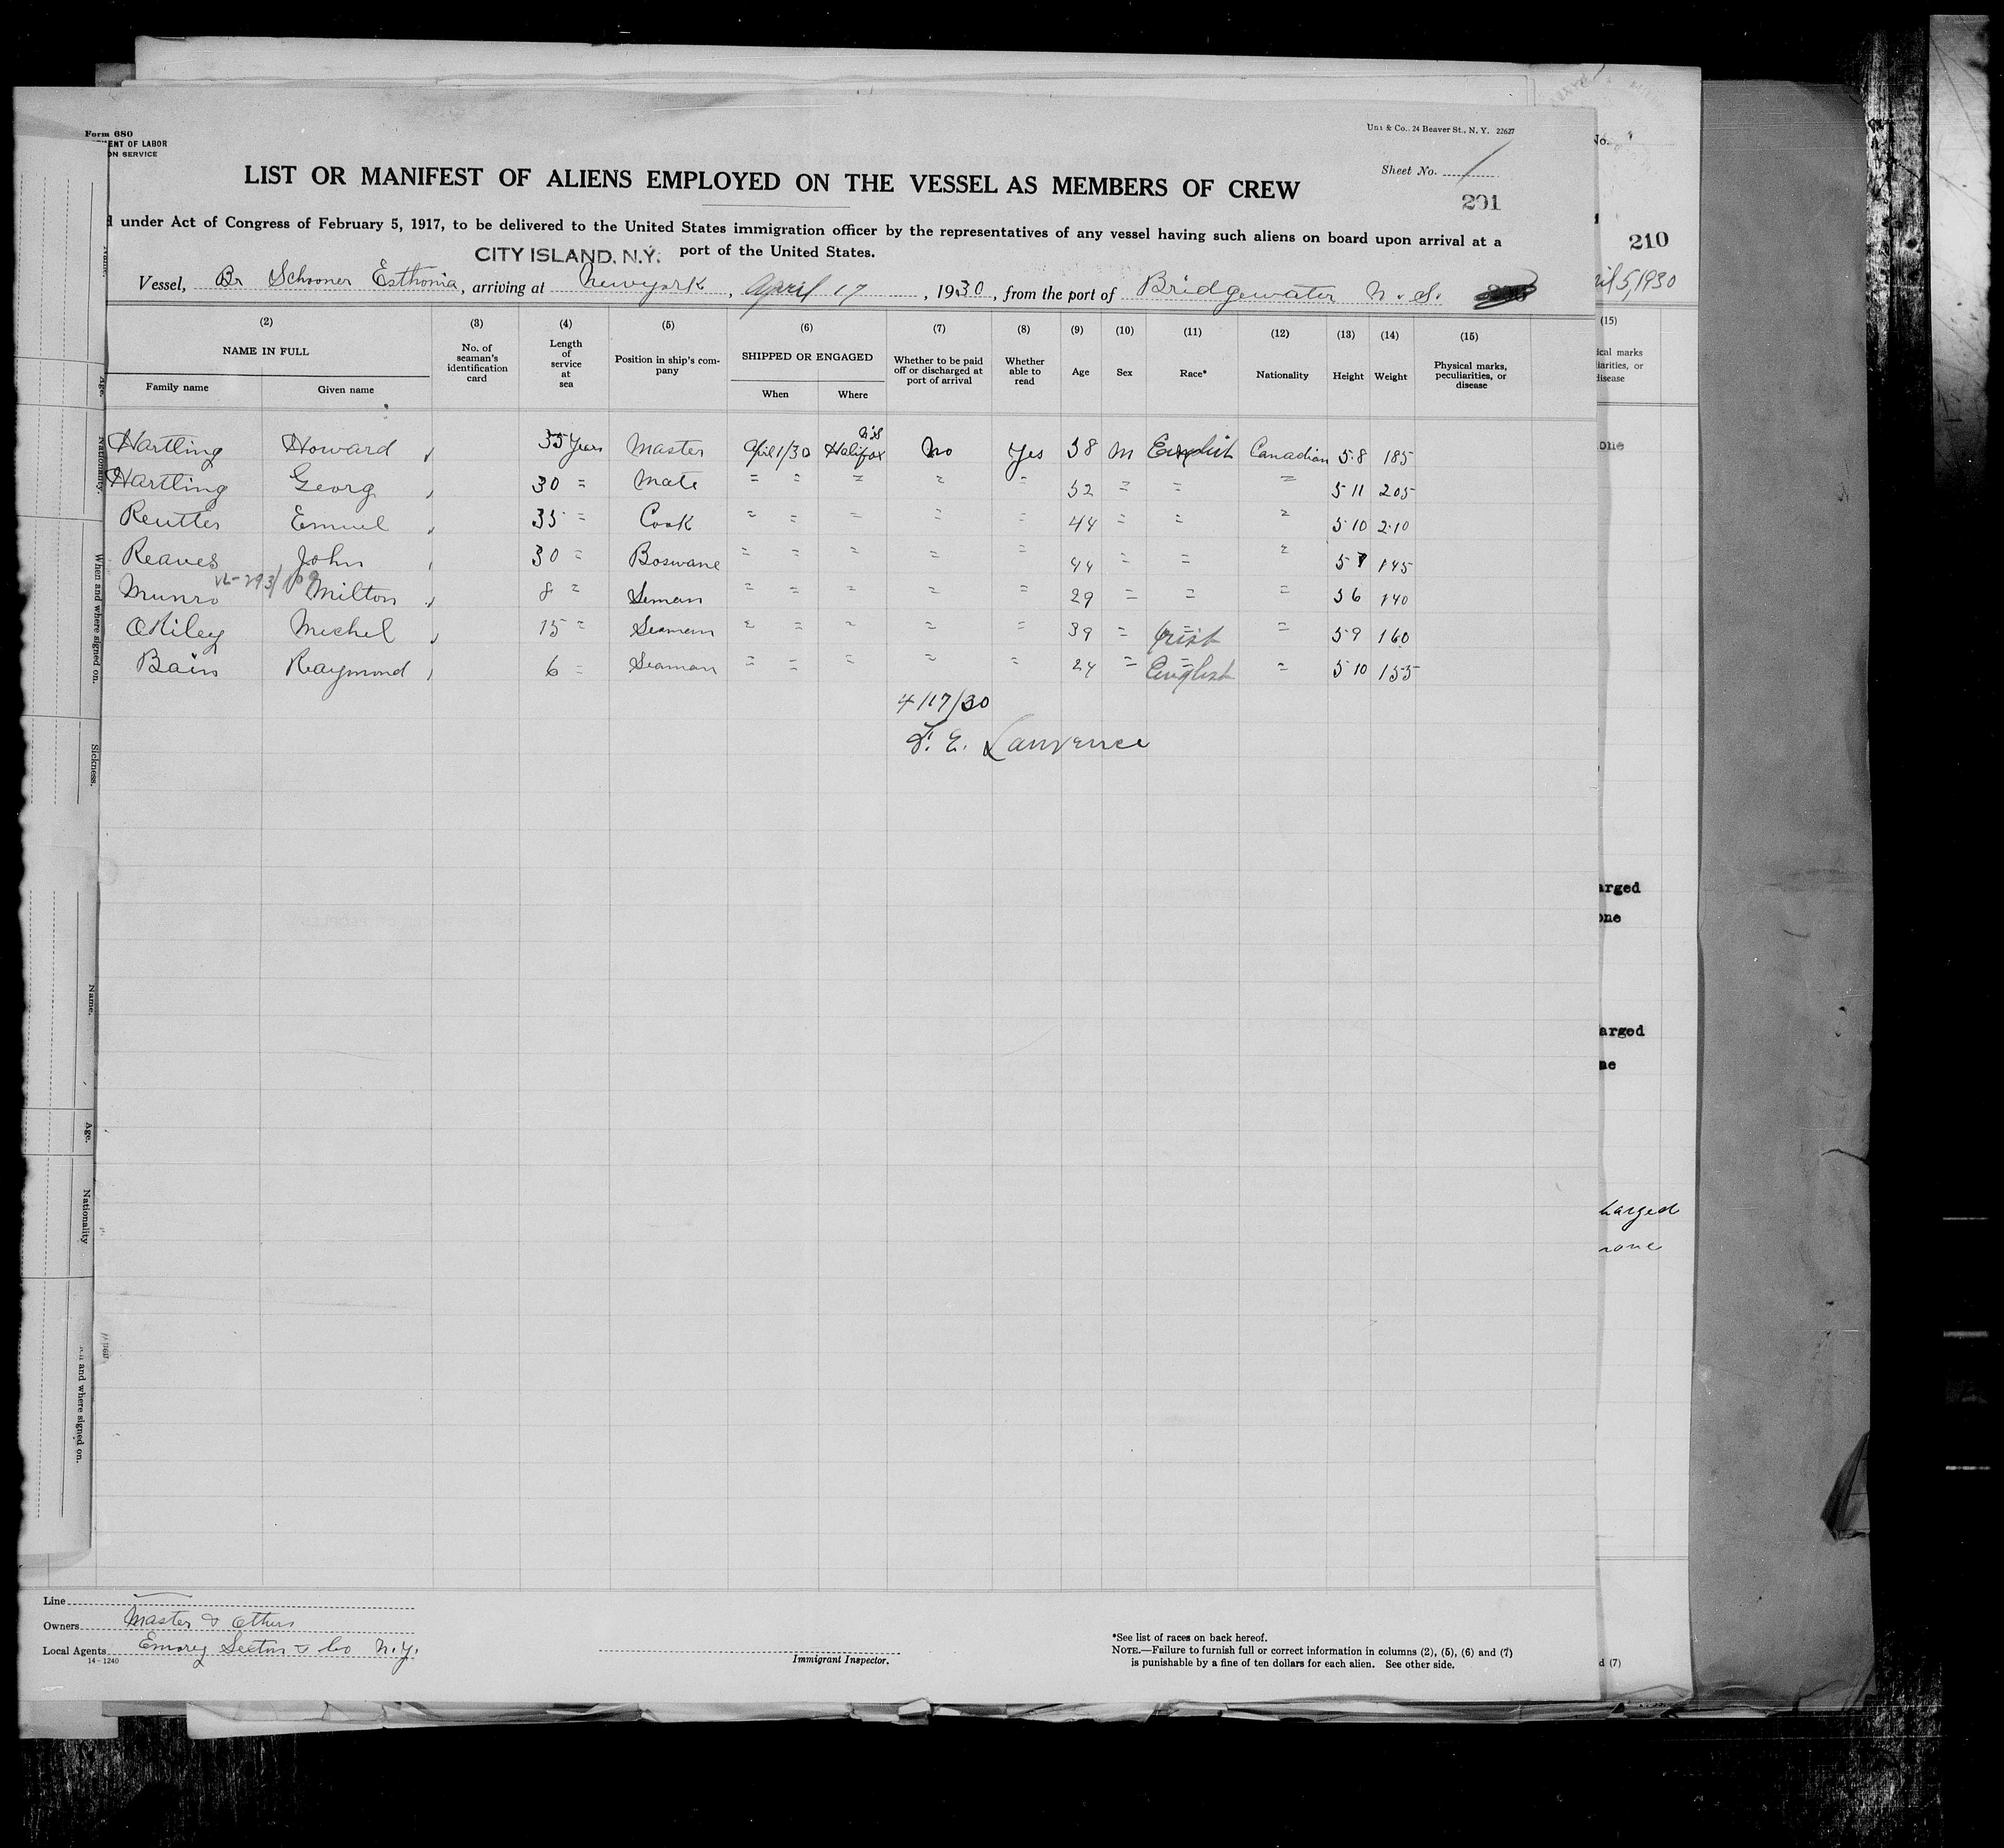 Form 680
MENT OF LABOR
ON SERVICE
24 Beaver St., N. Y. 22627
Sheet No. 1
LIST OR MANIFEST OF ALIENS EMPLOYED ON THE VESSEL AS MEMBERS OF CREW
201
under Act of Congress of February 5, 1917, to be delivered to the United States immigration officer by the representatives of any vessel having such aliens on board upon arrival at a
CITY ISLAND, N.Y. port of the United States.
Vessel, Br Schooner Esthonia, arriving at Newyork, April 17, 1930, from the port of Bridgewater N.S.
(2) (3) (4) (5) (6) (7) (8) (9) (10) (11) (12) (13) (14) (15)
NAME IN FULL Family name Given name No. of seaman's identification card Length of service at sea Position in ship's company SHIPPED OR ENGAGED When Where Whether to be paid off or discharged at port of arrival Whether able to read Age Sex Race* Nationality Height Weight Physical marks, peculiarities, or disease
Hartling Howard 35 years Master April 1/30 Halifax N.S No Yes 58 M English Canadian 5.8 185
Hartling Georg 30 = Mate = = = = = 52 = = = 5 11 205
Reutter Emuel 35 = Cook = = = = = 44 = = = 5 10 210
Reaves John 30 = Boswane = = = = = 44 = = = 5 7 145
Munro Milton 8 = Seman = = = = = 29 = = = 5 6 140
ORiley Michel 15 = Seamem = = = = = 39 = Irish = 5 9 160
Bain Reaymond 6 = Seaman = = = = = 24 = English = 5 10 155
4/17/30
T. E. Lawrence
Line
Owners Master & Others
Local Agents Emorey Sexton & Co N.Y.
14-1240
Immigrant Inspector.
*See list of races on back hereof.
NOTE.—Failure to furnish full or correct information in columns (2), (5), (6) and (7)
is punishable by a fine of ten dollars for each alien. See other side.
No.
210
ril 5, 1930
(15)
ical marks
liarities, or
disease
one
arged
one
arged
ne
harged
none
d (7)
Age.
Nationality.
When and where signed on.
Sickness.
Name.
Age.
Nationality
and where signed on.